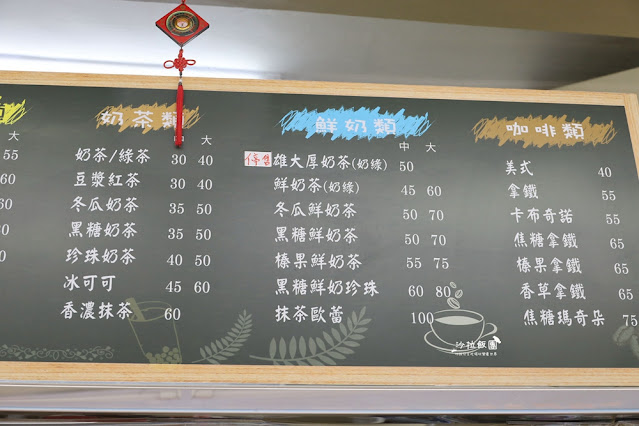 大
55
60
60
奶茶類
中 大
奶茶/綠茶 30 40
豆漿紅茶 30 40
冬瓜奶茶 35 50
黑糖奶茶 35 50
珍珠奶茶 40 50
冰可可 45 60
香濃抹茶 60
鮮奶類
中 大
停售 雄大厚奶茶(奶綠) 50
鮮奶茶(奶綠) 45 60
冬瓜鮮奶茶 50 70
黑糖鮮奶茶 50 70
榛果鮮奶茶 55 75
黑糖鮮奶珍珠 60 80
抹茶歐蕾 100
咖啡類
美式 40
拿鐵 55
卡布奇諾 55
焦糖拿鐵 65
榛果拿鐵 65
香草拿鐵 65
焦糖瑪奇朵 75
沙拉飯團